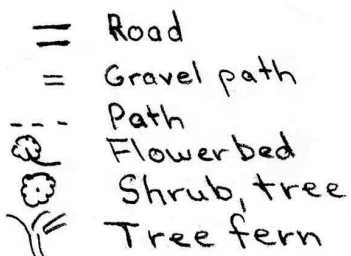 Road
Gravel path
Path
Flowerbed
Shrub, tree
Tree fern